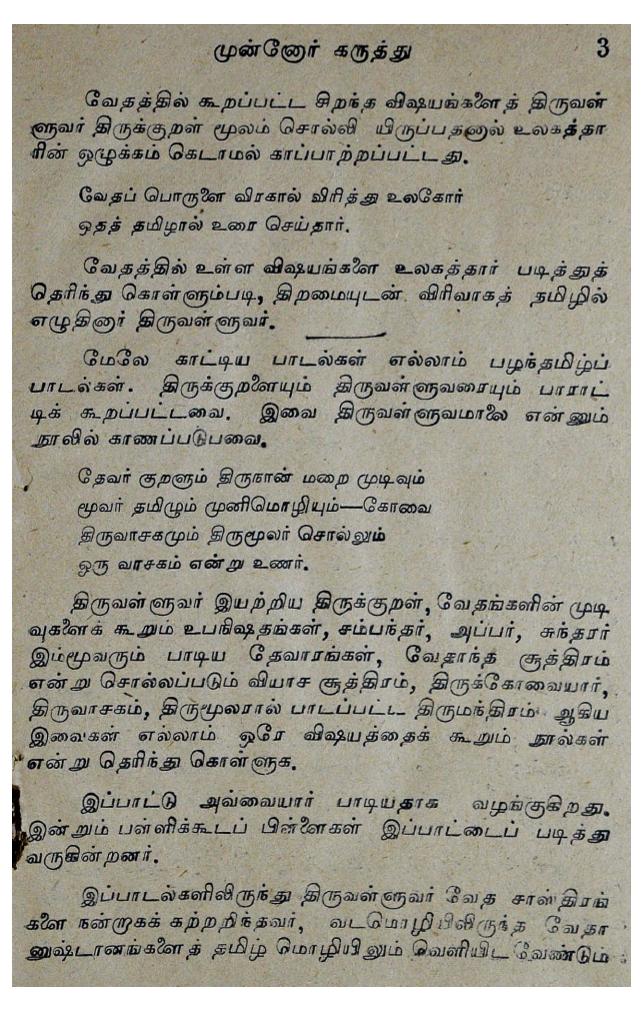 முன்னோர் கருத்து 3
வேதத்தில் கூறப்பட்ட சிறந்த விஷயங்களைத் திருவள்
ளுவர் திருக்குறள் மூலம் சொல்லி யிருப்பதனால் உலகத்தா
ரின் ஒழுக்கம் கெடாமல் காப்பாற்றப்பட்டது.
வேதப் பொருளை விரகால் விரித்து உலகோர்
ஓதத் தமிழால் உரை செய்தார்.
வேதத்தில் உள்ள விஷயங்களை உலகத்தார் படித்துத்
தெரிந்து கொள்ளும்படி, திறமையுடன் விரிவாகத் தமிழில்
எழுதினார் திருவள்ளுவர்.
மேலே காட்டிய பாடல்கள் எல்லாம் பழந்தமிழ்ப்
பாடல்கள். திருக்குறளையும் திருவள்ளுவரையும் பாராட்
டிக் கூறப்பட்டவை. இவை திருவள்ளுவமாலை என்னும்
நூலில் காணப்படுபவை.
தேவர் குறளும் திருநான் மறை முடிவும்
மூவர் தமிழும் முனிமொழியும்—கோவை
திருவாசகமும் திருமூலர் சொல்லும்
ஒரு வாசகம் என்று உணர்.
திருவள்ளுவர் இயற்றிய திருக்குறள், வேதங்களின் முடி
வுகளைக் கூறும் உபநிஷதங்கள், சம்பந்தர், அப்பர், சுந்தரர்
இம்மூவரும் பாடிய தேவாரங்கள், வேதாந்த சூத்திரம்
என்று சொல்லப்படும் வியாச சூத்திரம், திருக்கோவையார்,
திருவாசகம், திருமூலரால் பாடப்பட்ட திருமந்திரம் ஆகிய
இவைகள் எல்லாம் ஒரே விஷயத்தைக் கூறும் நூல்கள்
என்று தெரிந்து கொள்ளுக.
இப்பாட்டு அவ்வையார் பாடியதாக வழங்குகிறது.
இன்றும் பள்ளிக்கூடப் பிள்ளைகள் இப்பாட்டைப் படித்து
வருகின்றனர்.
இப்பாடல்களிலிருந்து திருவள்ளுவர் வேத சாஸ்திரங்
களை நன்றாகக் கற்றறிந்தவர், வடமொழியிலிருந்த வேதா
னுஷ்டானங்களைத் தமிழ் மொழியிலும் வெளியிட வேண்டும்